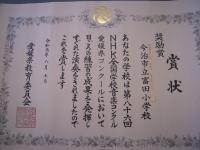 賞状
奨励賞
今治市立富田小学校
あなたの学校は第八十六回
NHK全国学校音楽コンクール
愛媛県コンクールにおいて
日ごろの練習の成果を発揮し
すぐれた演奏をされましたので
これを賞します
令和元年八月七日
愛媛県教育委員会